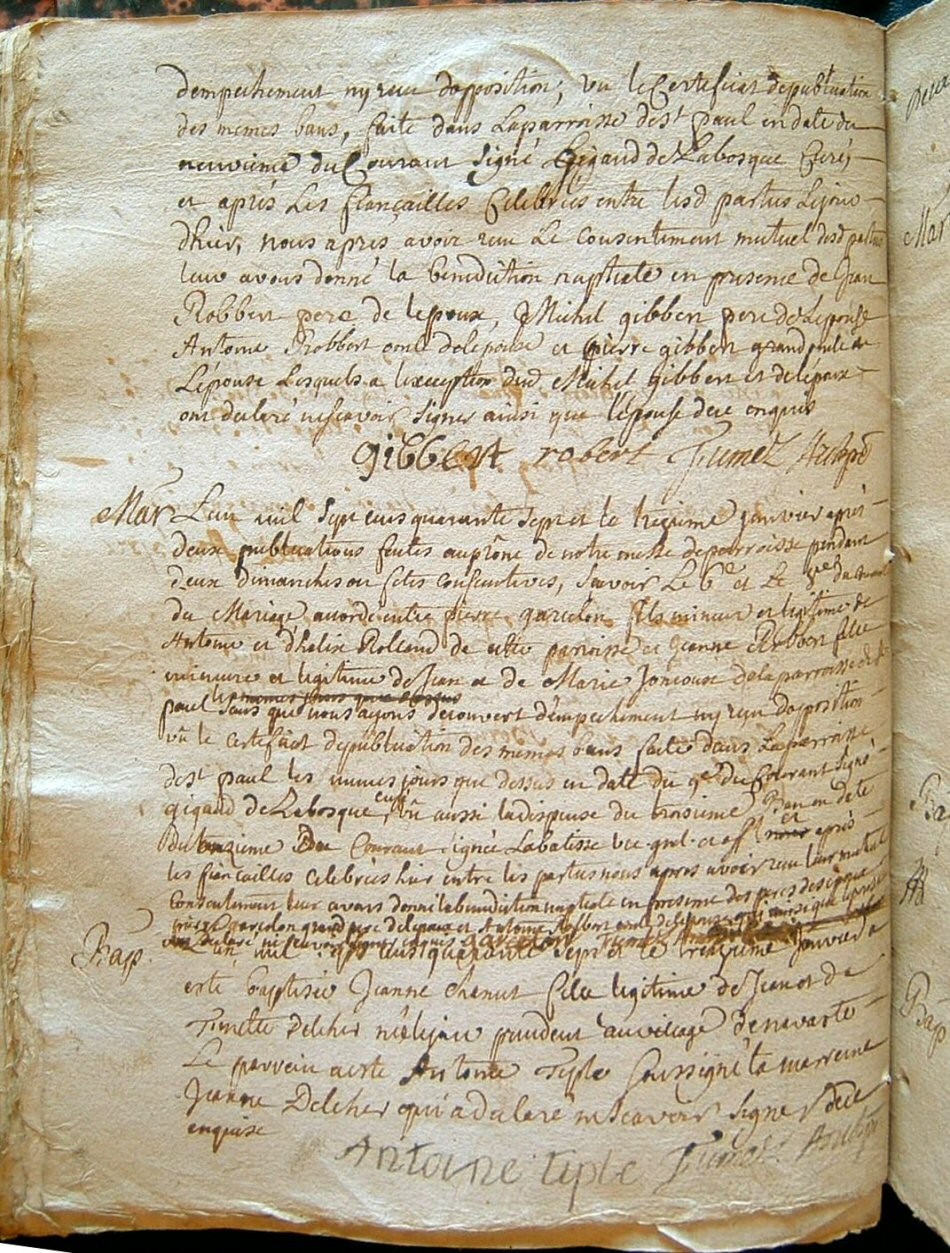 dempechement ny reçu dopposition; vu le Certificat de publication
des memes bans, faite dans Laparroisse de st paul en date du
neuvieme du Courant signé Gigaud de Labosque Curé,
et aprés Les fiançailles Celebrées entre lesd parties Lejour
dhier, nous apres avoir reçu Le consentiment mutuel desd parties
leur avons donné la benediction nuptiale en presence de Jean
Robbert pere de lepoux, Michel gibbert pere de Lepouse
Antoine Robbert oncle de lepouse et pierre gibbert grand
Lépouse Lesquels a lexception dud Michel gibbert et de lepoux
ont declaré ne scavoir signer ainsi que l'épouse de ce enquis
gibbert robert Fumel Archpre
Mar L'an mil sept cens quarante sept et le treizieme janvier aprés
deux publications faites au prône de notre messe de parroisse pendant
deux dimanches ou fetes consecutives, scavoir Le 6e et Le du courant
du Mariage accordé entre pierre garcelon fils mineur et legitime de
Antoine et dhelix Rolland de cette parroisse et Jeanne Robbert fille
mineure et legitime de Jean et de Marie Joncouse de la parroisse de st
paul sans que nous ayons decouvert d'empechement ny reçu dopposition
vû le certificat de publication des memes bans faite dans Laparroisse
de st paul les memes jours que dessus en date du 9e du Courant signé
gigaud de Labosque curé, vû aussi la dispense du troisieme Ban en date
du onzieme Du Courant signée Labatisse vic gnl. et off et aprés
les fiençailles celebrées hier entre les parties nous apres avoir reçu leur mutuel
Consentement leur avons donné la benediction nuptiale en presence des peres des epoux
garcelon grand pere de lepoux et Antoine Robbert oncle de lepouse qui ainsi que
declaré ne scavoir signer enquis garcelon
Bap. L'an mil sept cens quarante sept et le treizieme Janvier a
esté baptisée Jeanne Chanut fille legitime de Jean et de
Delcher née le jour precedent au village denavaste
Le parrein a esté Antoine Tiple soussigné la marreine
Jeanne Delcher qui a declaré ne scavoir signer de ce
enquise
Antoine tiple Fumel Archpr